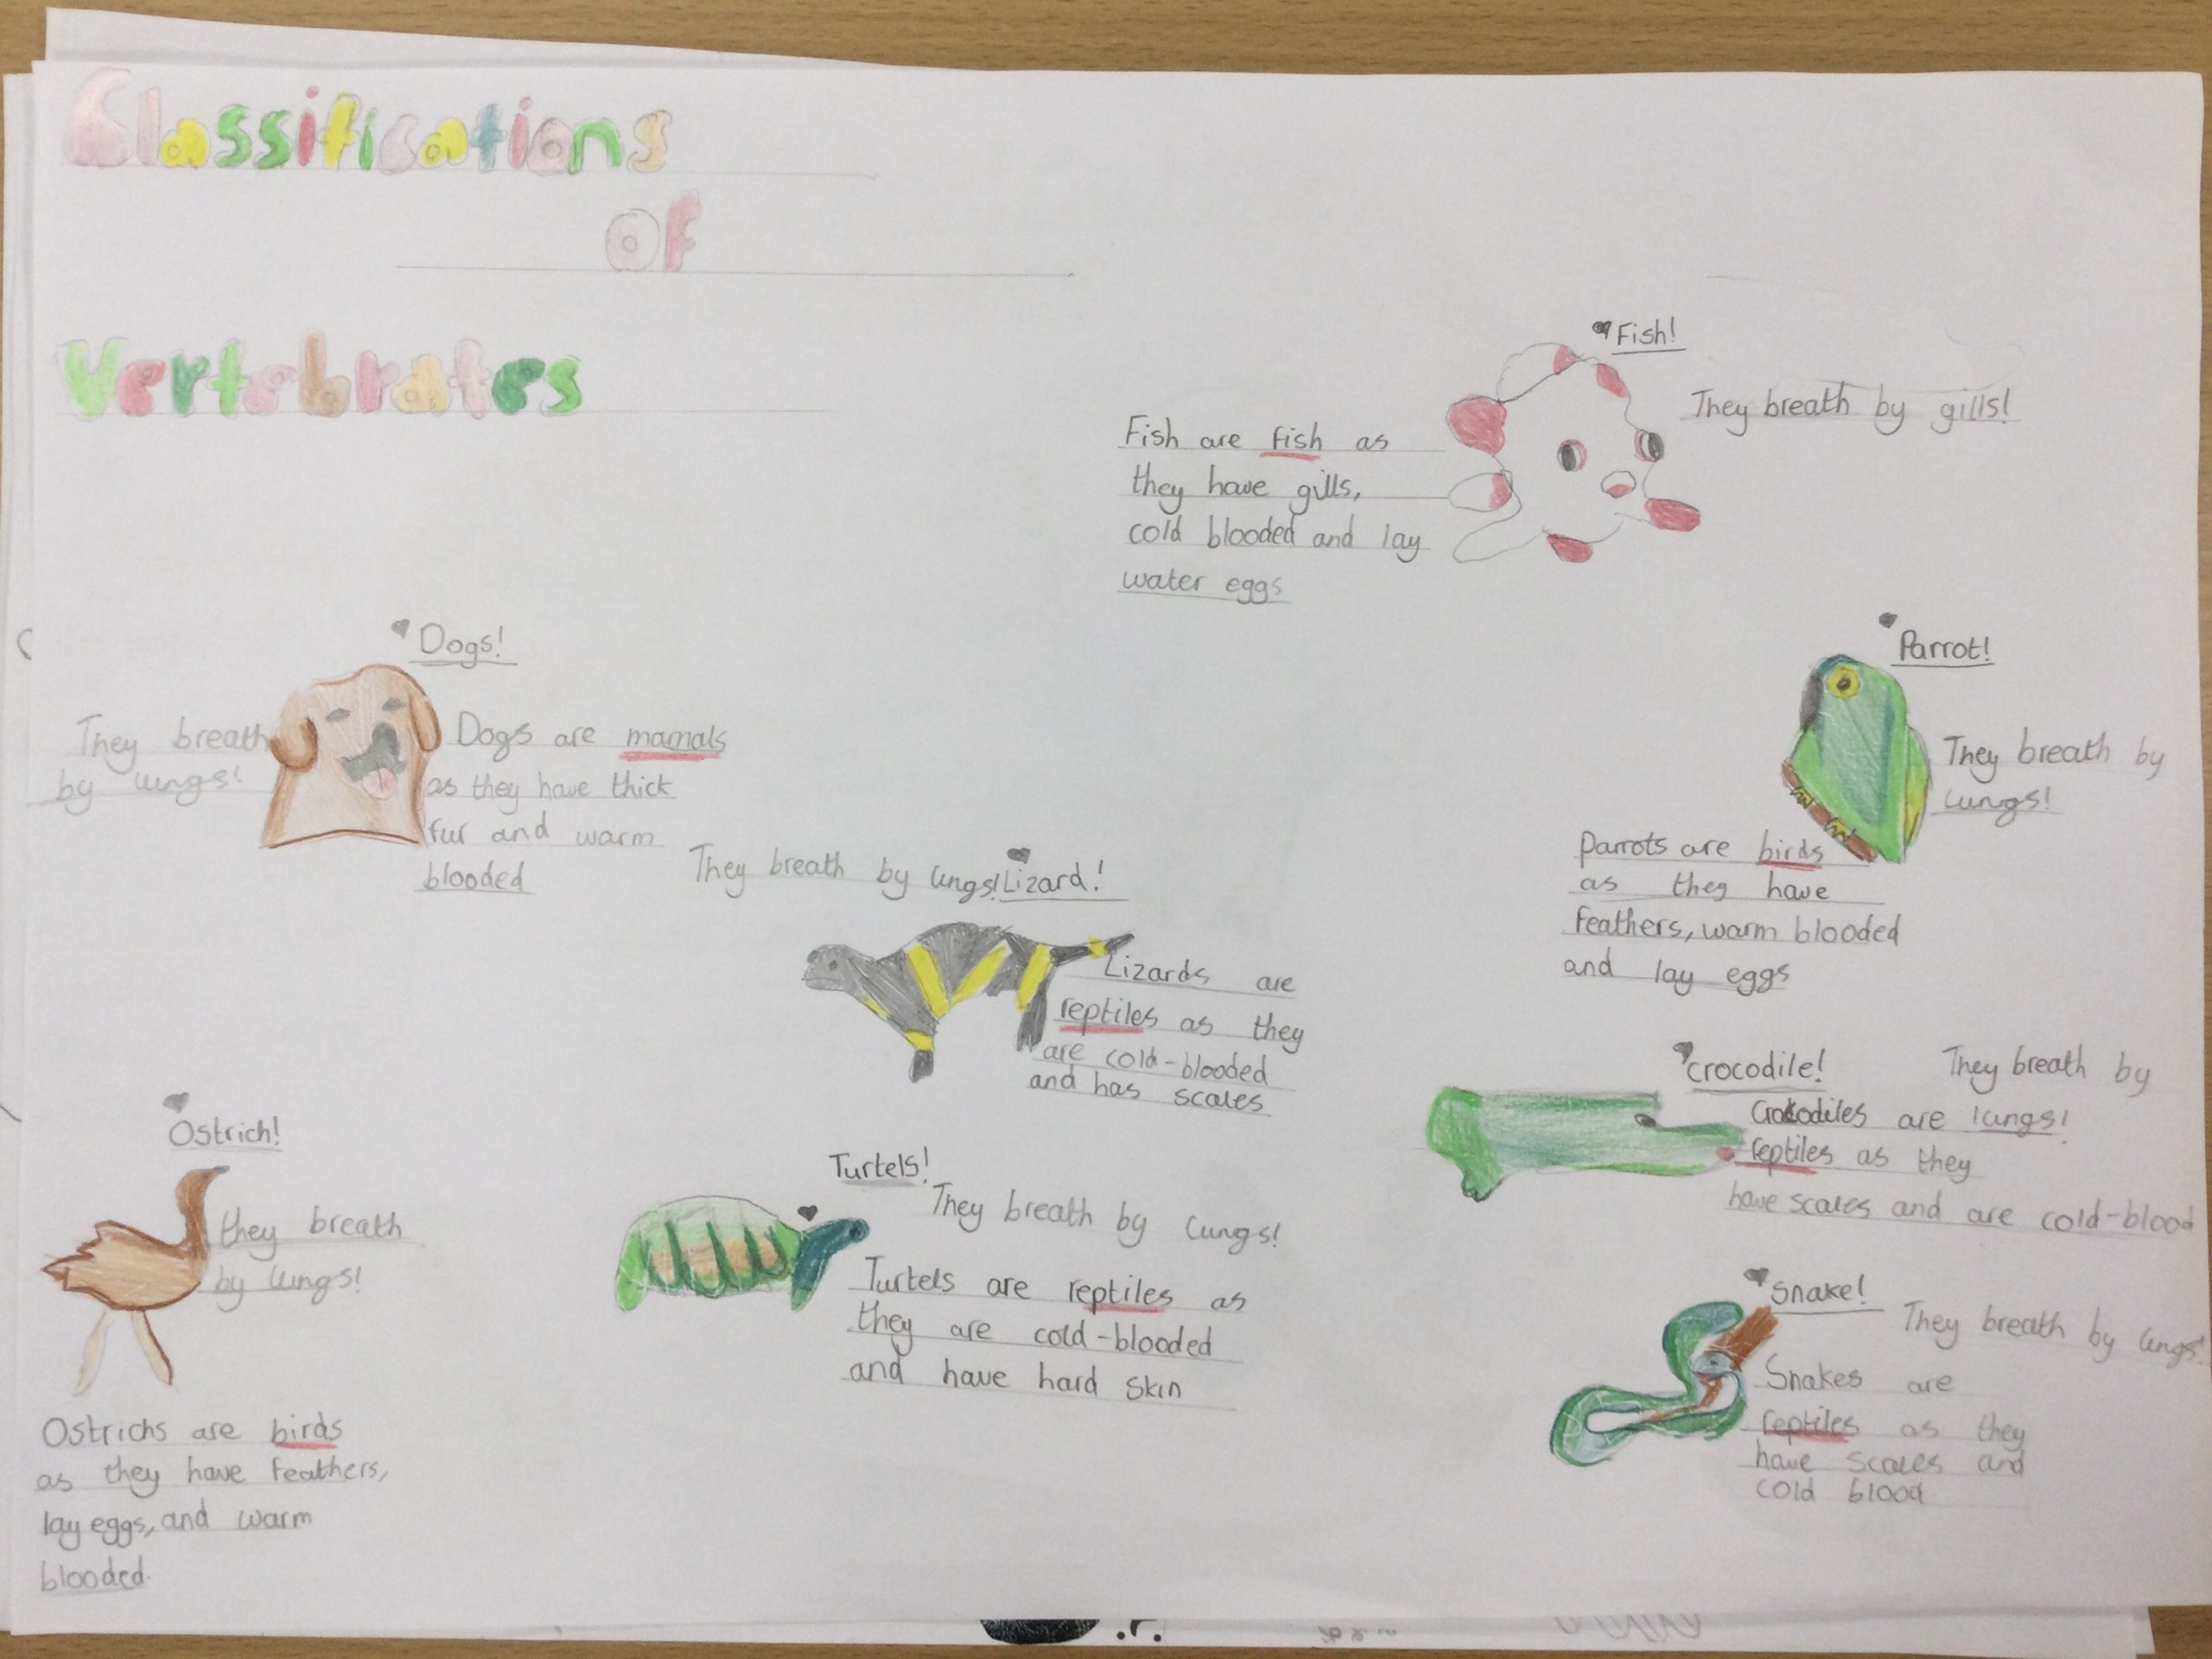 Classifications
of
Vertebrates
Fish!
They breath by gills!
Fish are fish as
they have gills,
cold blooded and lay
water eggs
Dogs!
They breath
by lungs!
Dogs are mamals
as they have thick
fur and warm
blooded
Parrot!
They breath by
lungs!
Parrots are birds
as they have
feathers, warm blooded
and lay eggs
They breath by lungs!
Lizard!
Lizards are
reptiles as they
are cold-blooded
and has scales
crocodile!
They breath by
lungs!
Crocodiles are
reptiles as they
have scales and are cold-blood
Ostrich!
they breath
by lungs!
Ostrichs are birds
as they have feathers,
lay eggs, and warm
blooded.
Turtels!
They breath by lungs!
Turtels are reptiles as
they are cold-blooded
and have hard skin
Snake!
They breath by lungs!
Snakes are
reptiles as they
have scales and
cold blood